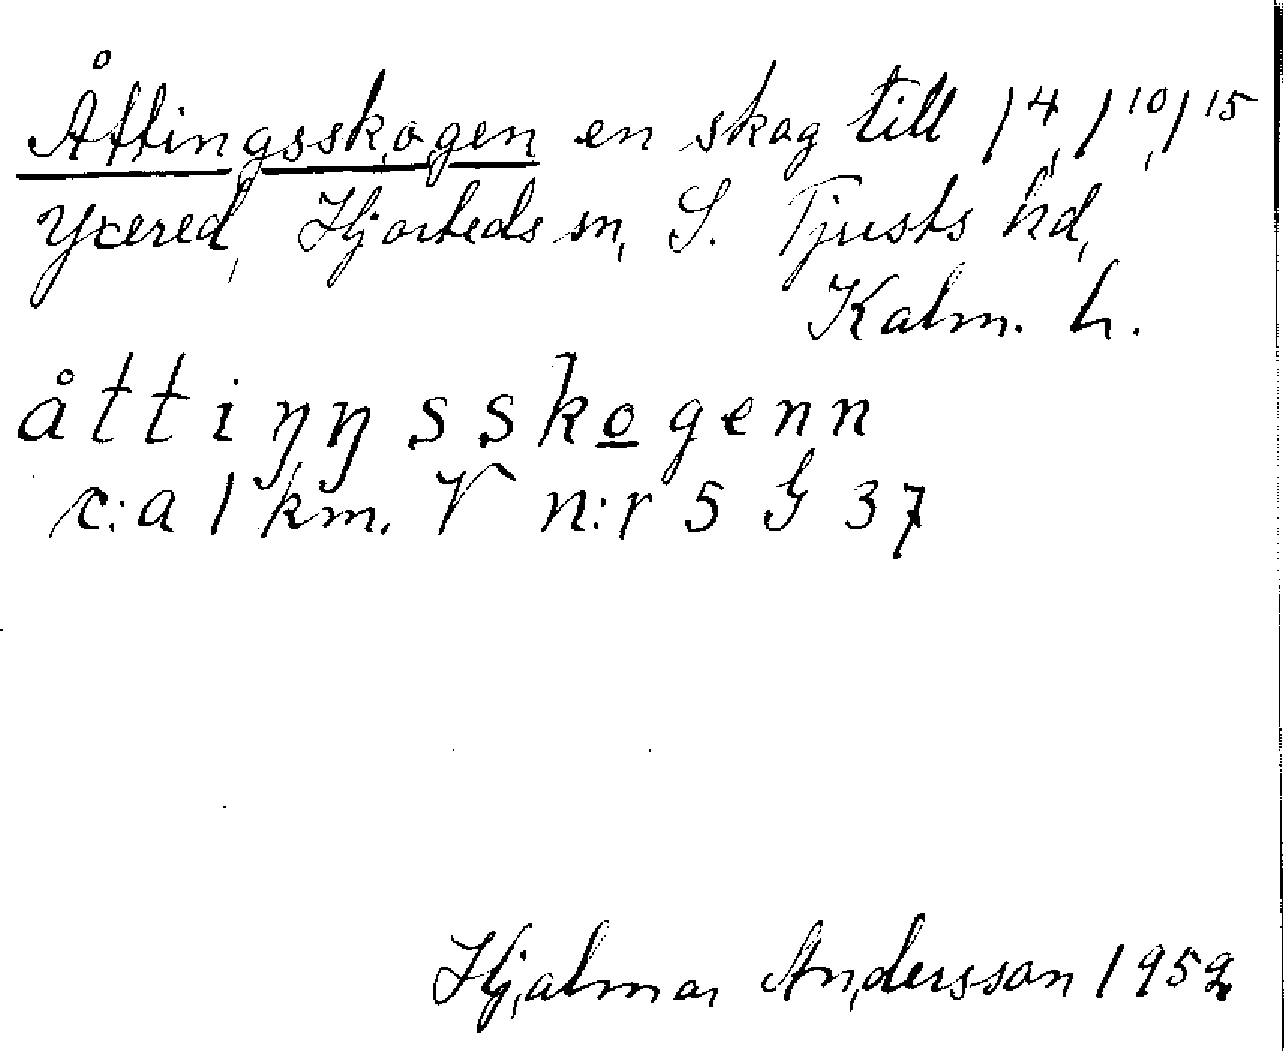 Åttingsskogen en skog till 1⁴, 1¹⁰, 1¹⁵
Yxered, Hjorteds sn, S. Tjusts hd,
Kalm. L.
åttiŋŋsskogenn
c:a 1 km. V n:r 5 G 37
Hjalmar Andersson 1952